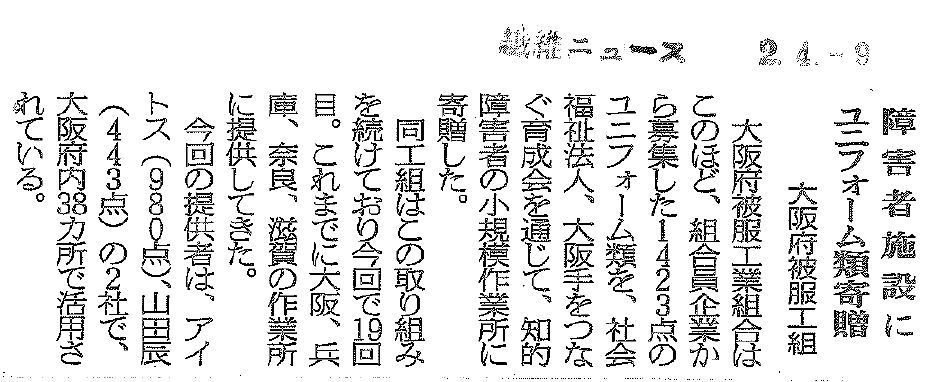 繊維ニュース　2.4.-9
障害者施設に
ユニフォーム類寄贈
大阪府被服工組
大阪府被服工業組合は
このほど、組合員企業か
ら募集した1423点の
ユニフォーム類を、社会
福祉法人、大阪手をつな
ぐ育成会を通じて、知的
障害者の小規模作業所に
寄贈した。
同工組はこの取り組み
を続けており今回で19回
目。これまでに大阪、兵
庫、奈良、滋賀の作業所
に提供してきた。
今回の提供者は、アイ
トス（980点）、山田辰
（443点）の2社で、
大阪府内38カ所で活用さ
れている。